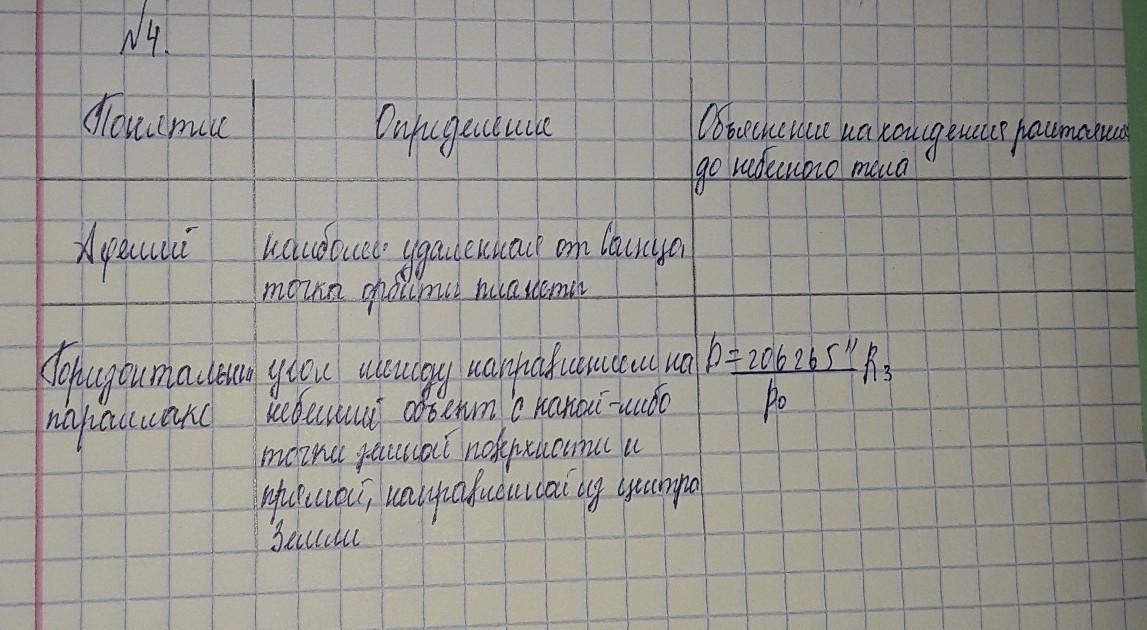 №4.
Понятие Определение Объяснение нахождения расстояния
до небесного тела
Афелий наиболее удаленная от Солнца
точка орбиты планеты
Горизонтальный угол между направлением на D = 206265" R₃
параллакс небесный объект с какой-либо p₀
точки земной поверхности и
прямой, направленной из центра
Земли